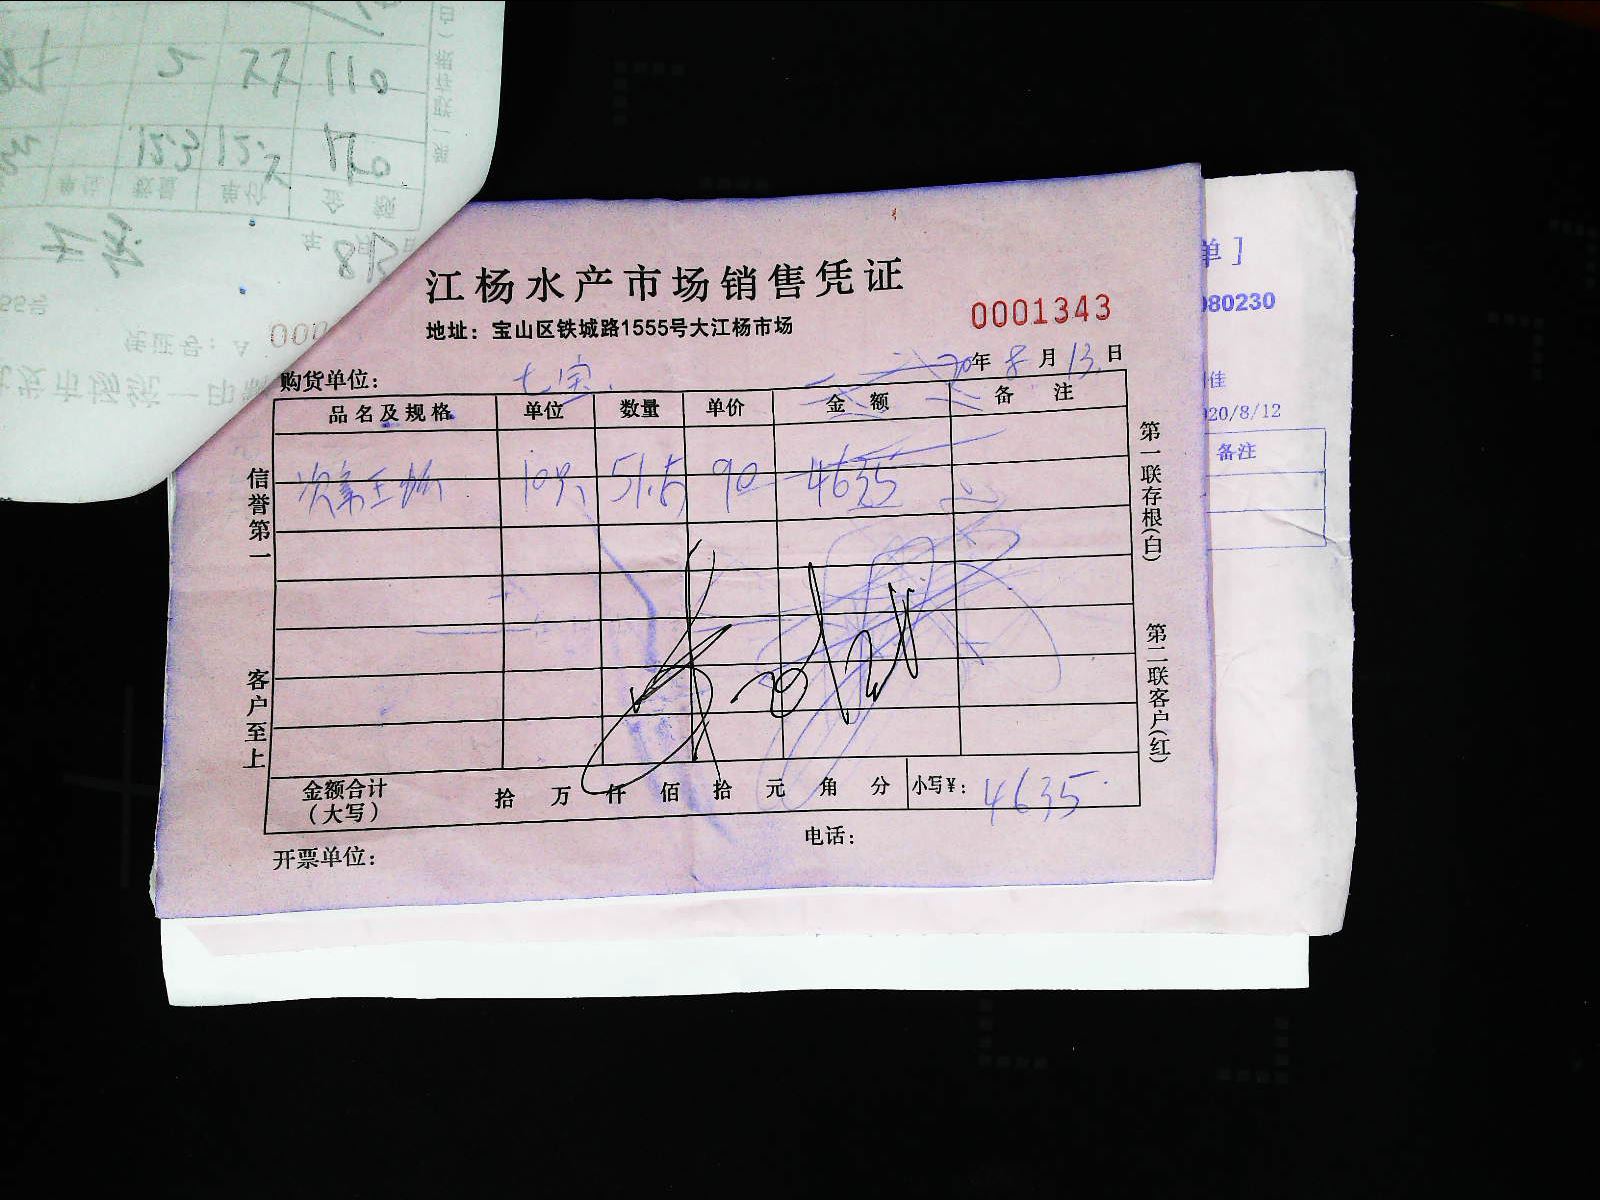 5 22 110
12.3 12.2 150
单位 数量 单价 金 额
年 8月13日
凭证号：A 000
江杨水产市场销售凭证
地址：宝山区铁城路1555号大江杨市场
0001343
购货单位： 七宝 20年 8月 13日
品名及规格 单位 数量 单价 金 额 备 注
10只 51.5 90 4635
金额合计（大写） 拾 万 仟 佰 拾 元 角 分 小写¥： 4635
开票单位： 电话：
信誉第一
客户至上
第一联存根(白)
第二联客户(红)
单]
080230
佳
20/8/12
备注